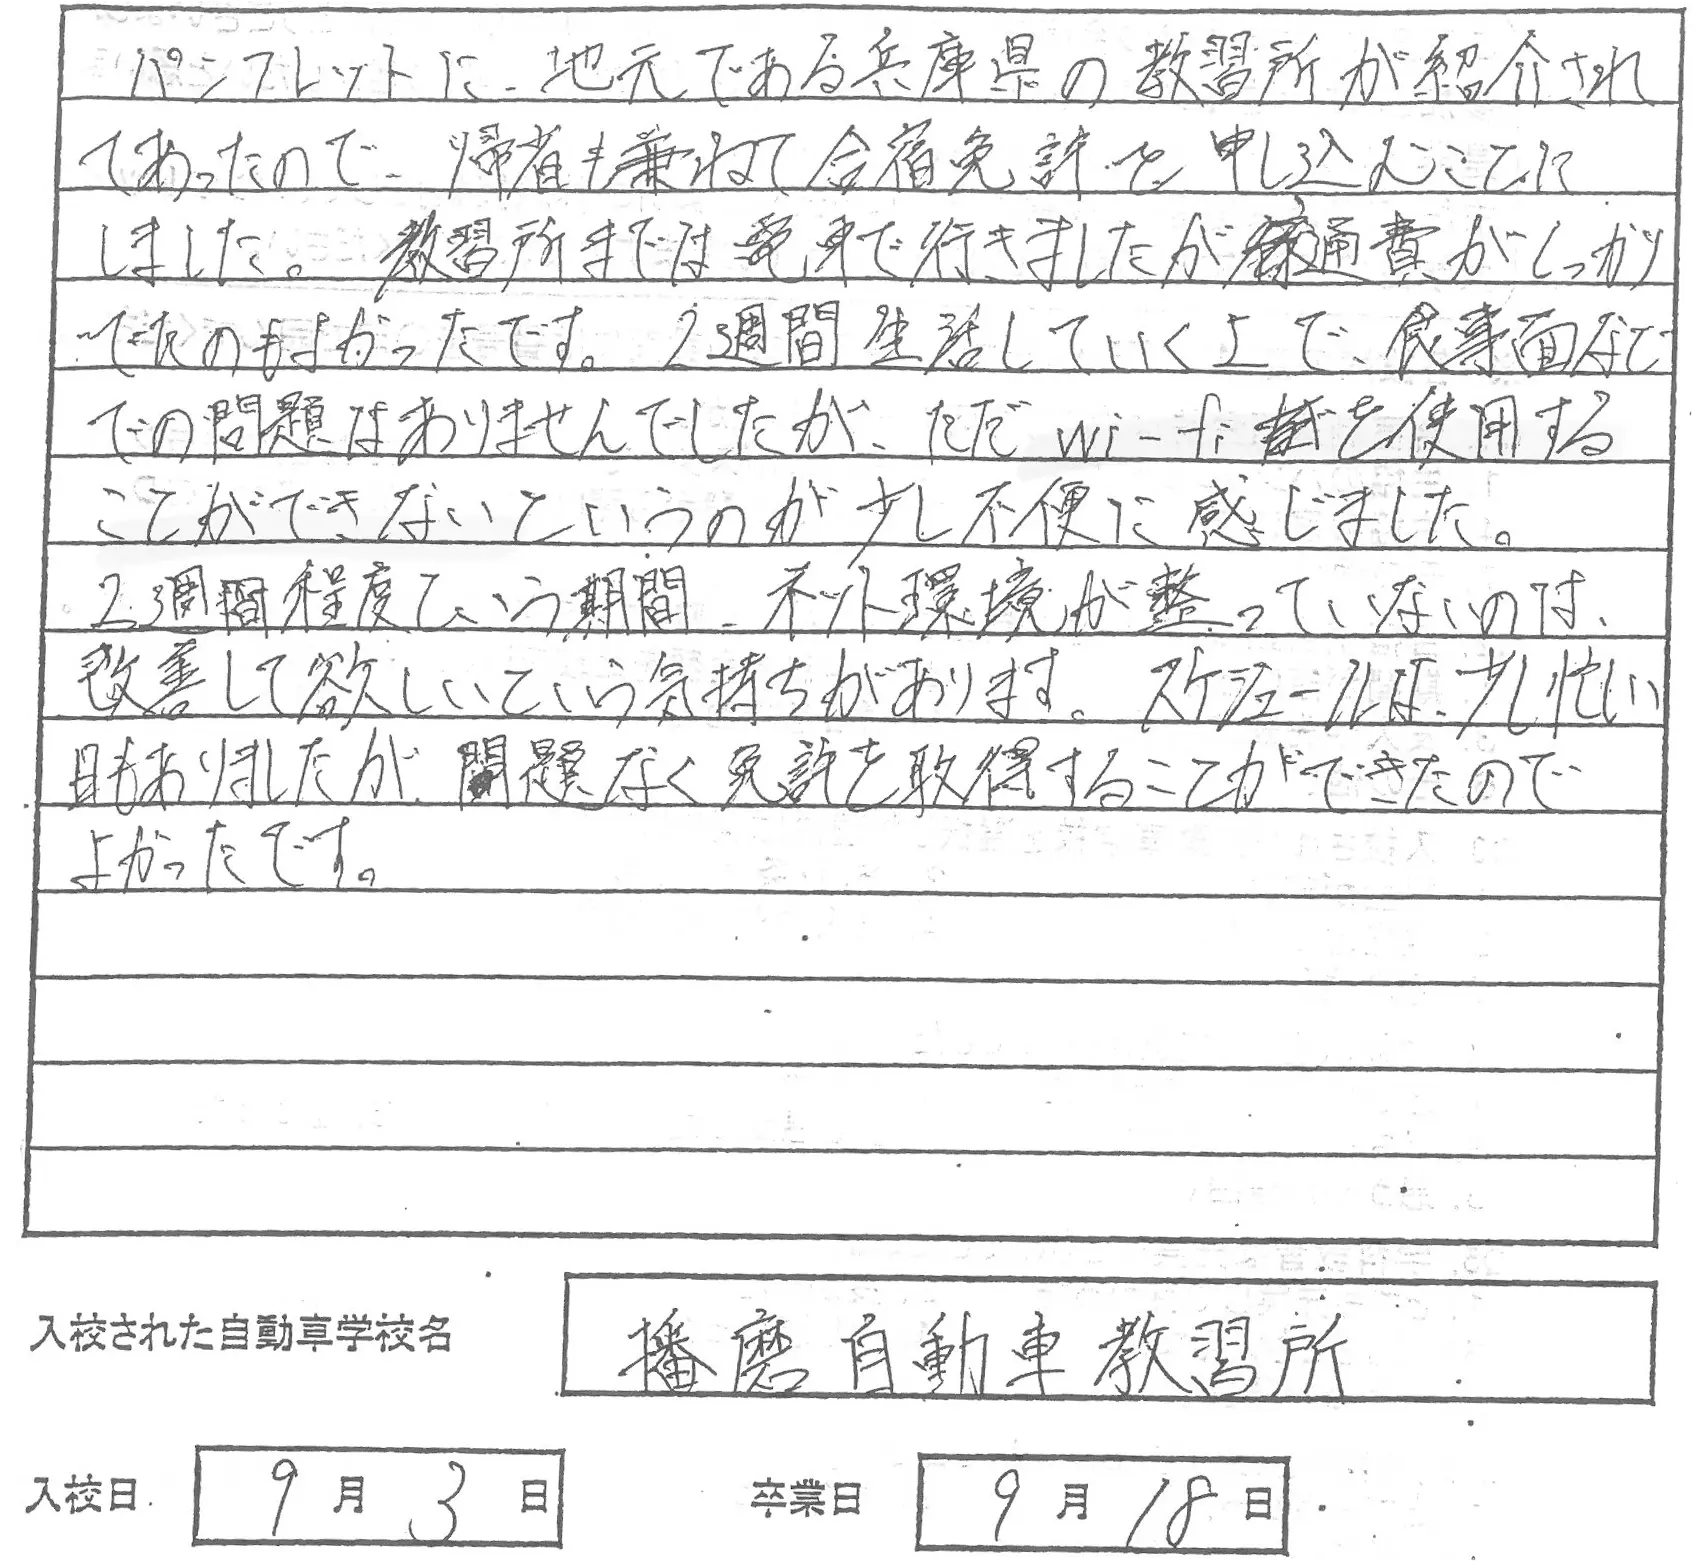 パンフレットに、地元である兵庫県の教習所が紹介され
てあったので、帰省も兼ねて合宿免許を申し込むことに
しました。教習所までは電車で行きましたが交通費がしっかり
でたのもよかったです。2,3週間生活していく上で、食事面など
での問題はありませんでしたが、ただwi-fiを使用する
ことができないというのが少し不便に感じました。
2,3週間程度という期間、ネット環境が整っていないのは、
改善して欲しいという気持ちがあります。スケジュールは、少し忙しい
日もありましたが、問題なく免許を取得することができたので
よかったです。
入校された自動車学校名 播磨自動車教習所
入校日 9月3日 卒業日 9月18日